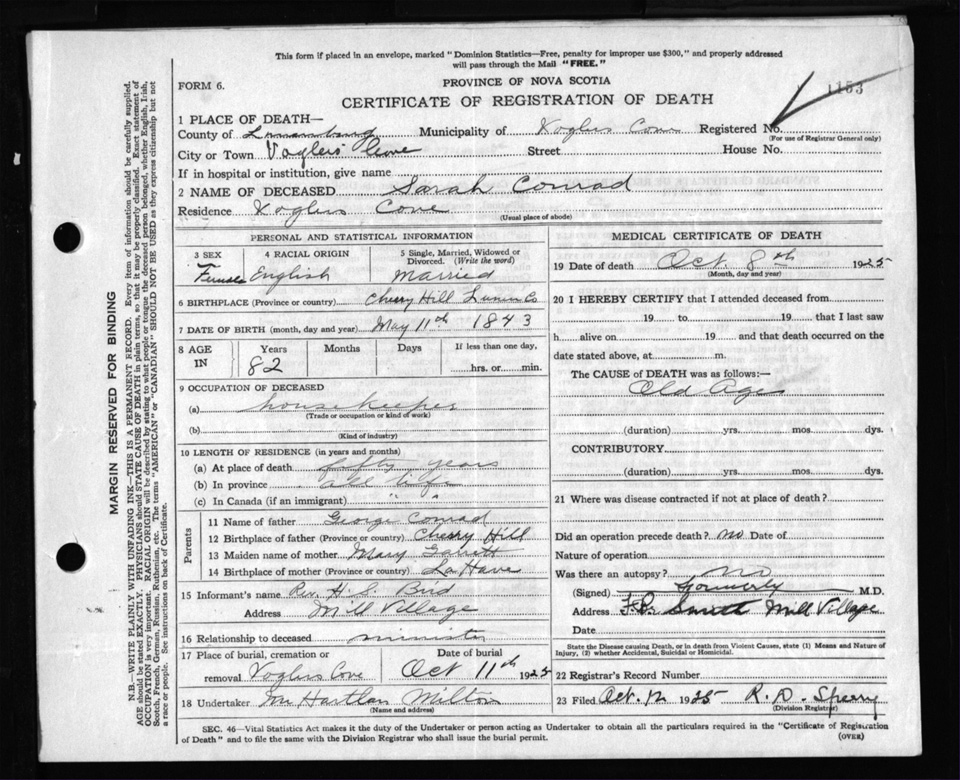 This form if placed in an envelope, marked "Dominion Statistics—Free, penalty for improper use $300," and properly addressed
will pass through the Mail "FREE."
FORM 6.
PROVINCE OF NOVA SCOTIA
1153
CERTIFICATE OF REGISTRATION OF DEATH
1 PLACE OF DEATH—
County of Lunenburg Municipality of Voglers Cove Registered No.
(For use of Registrar General only)
City or Town Voglers Cove Street House No.
If in hospital or institution, give name
2 NAME OF DECEASED Sarah Conrad
Residence Voglers Cove
(Usual place of abode)
PERSONAL AND STATISTICAL INFORMATION
3 SEX 4 RACIAL ORIGIN 5 Single, Married, Widowed or
Divorced. (Write the word)
Female English Married
6 BIRTHPLACE (Province or country) Cherry Hill Lunen Co
7 DATE OF BIRTH (month, day and year) May 11th 1843
8 AGE IN Years Months Days If less than one day,
82 hrs. or min.
9 OCCUPATION OF DECEASED
(a) housekeeper
(Trade or occupation or kind of work)
(b)
(Kind of industry)
10 LENGTH OF RESIDENCE (in years and months)
(a) At place of death fifty years
(b) In province all life
(c) In Canada (if an immigrant) " "
Parents
11 Name of father George Conrad
12 Birthplace of father (Province or country) Cherry Hill
13 Maiden name of mother Mary
14 Birthplace of mother (Province or country) La Have
15 Informant's name Rev. H. S. Bird
Address Mill Village
16 Relationship to deceased minister
17 Place of burial, cremation or Date of burial
removal Voglers Cove Oct 11th 1925
18 Undertaker Hartlan Milton
(Name and address)
MEDICAL CERTIFICATE OF DEATH
19 Date of death Oct 8th 1925
(Month, day and year)
20 I HEREBY CERTIFY that I attended deceased from
19 to 19 that I last saw
h alive on 19 and that death occurred on the
date stated above, at m.
The CAUSE of DEATH was as follows:—
Old Age
(duration) yrs. mos. dys.
CONTRIBUTORY
(duration) yrs. mos. dys.
21 Where was disease contracted if not at place of death?
Did an operation precede death? no Date of
Nature of operation
Was there an autopsy? no
(Signed) M.D.
Address Smith Mill Village
Date
State the Disease causing Death, or in death from Violent Causes, state (1) Means and Nature of
Injury, (2) whether Accidental, Suicidal or Homicidal.
22 Registrar's Record Number
23 Filed Oct. 12 1925 R. D. Sperry
(Division Registrar)
SEC. 46—Vital Statistics Act makes it the duty of the Undertaker or Person acting as Undertaker to obtain all the particulars required in the "Certificate of Registration
of Death" and to file the same with the Division Registrar who shall issue the burial permit.
(OVER)
MARGIN RESERVED FOR BINDING
N.B.—WRITE PLAINLY WITH UNFADING INK—THIS IS A PERMANENT RECORD. Every item of information should be carefully supplied.
AGE should be stated EXACTLY. PHYSICIANS should STATE CAUSE OF DEATH in plain terms, so that it may be properly classified. Exact statement of
OCCUPATION is very important. RACIAL ORIGIN will be described by stating to what people or tongue the deceased person belonged, whether English, Irish,
Scotch, French, German, Russian, Ruthenian, etc. The terms "AMERICAN" or "CANADIAN" SHOULD NOT BE USED as they express citizenship but not
a race or people. See instructions on back of Certificate.